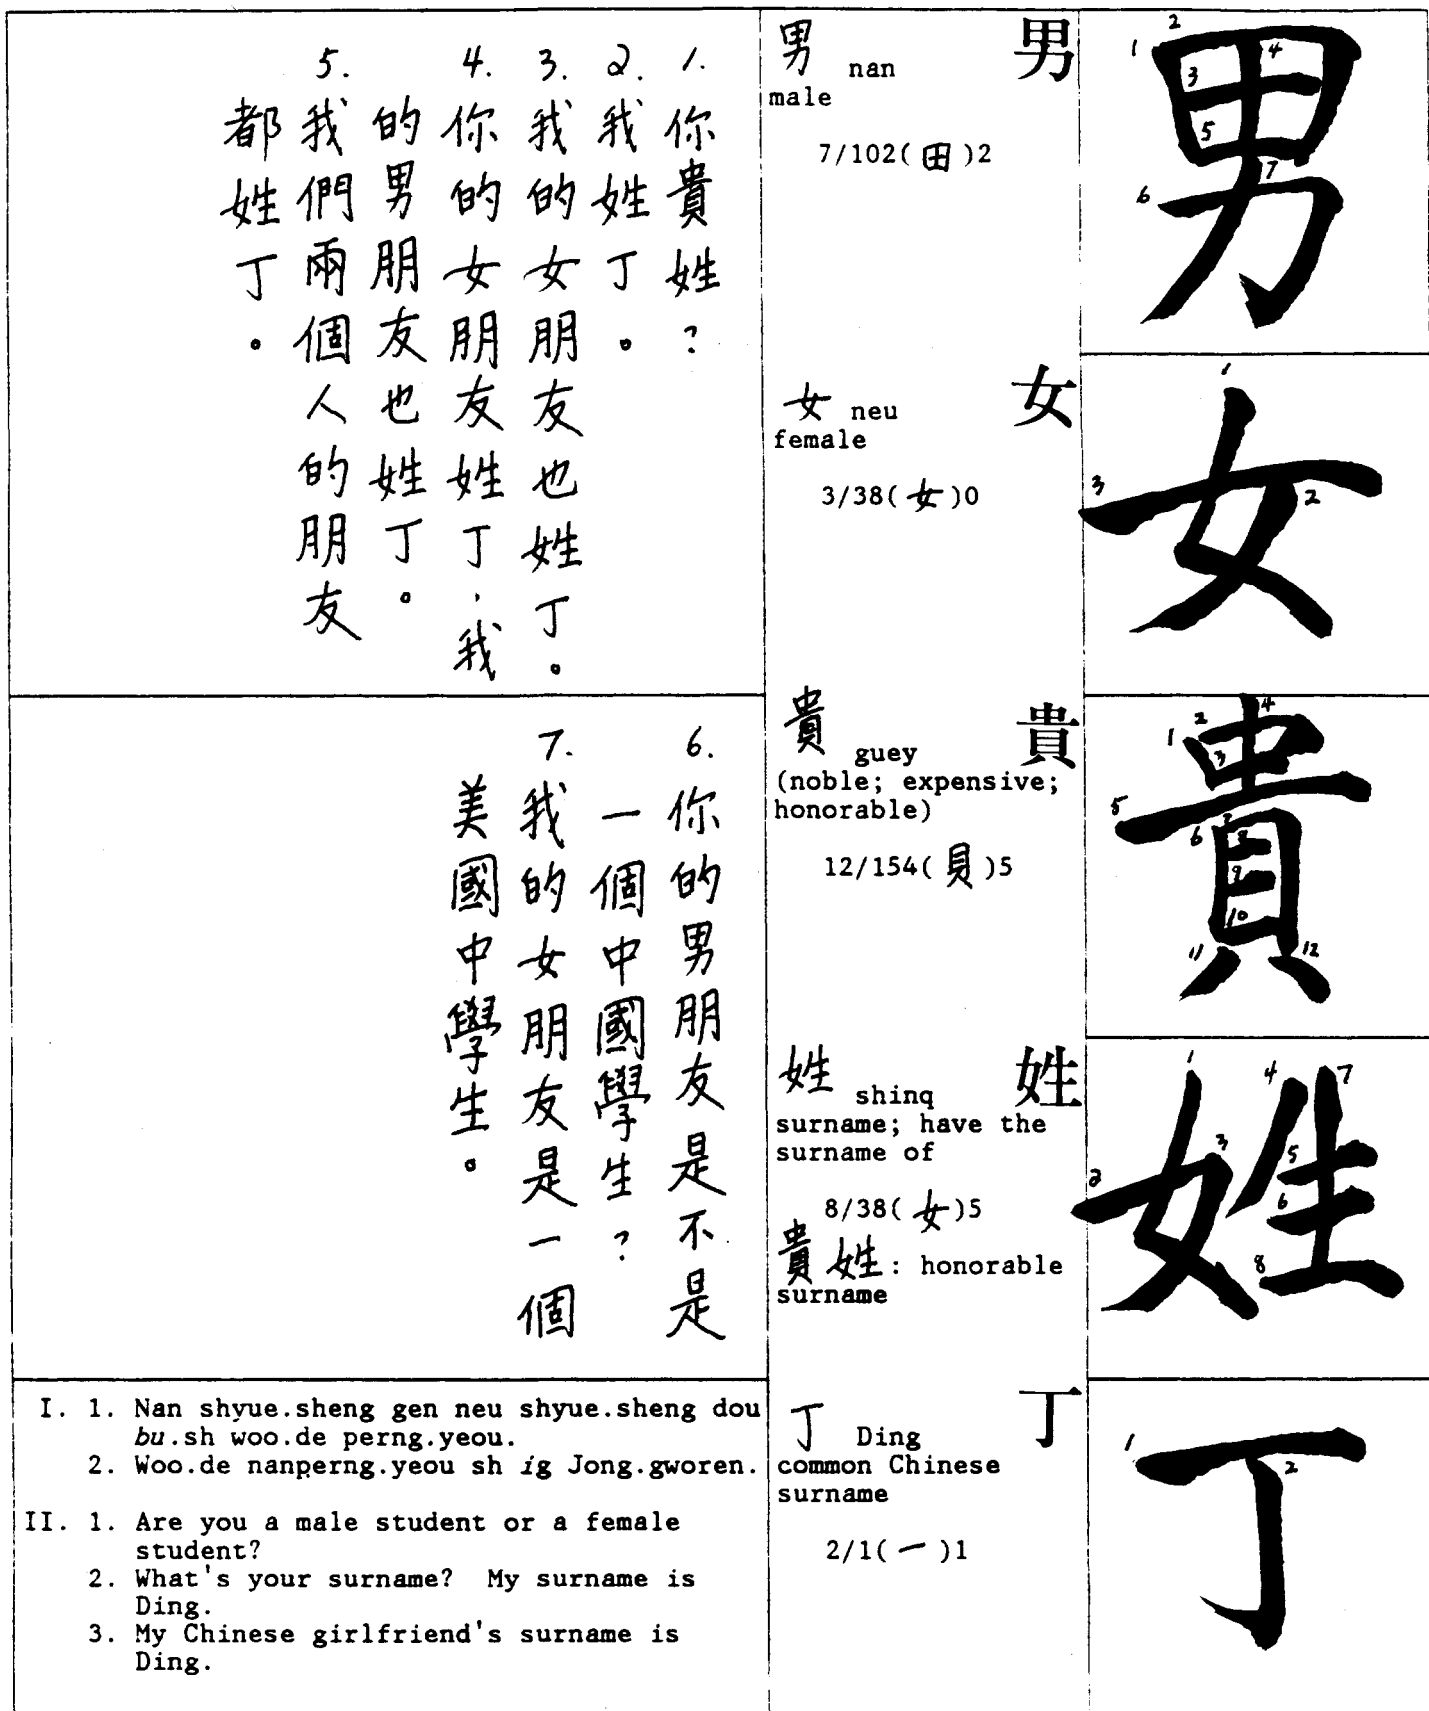 1.
你貴姓？
2.
我姓丁。
3.
我的女朋友也姓丁。
4.
你的女朋友姓丁，我
的男朋友也姓丁。
5.
我們兩個人的朋友
都姓丁。
6.
你的男朋友是不是
一個中國學生？
7.
我的女朋友是一個
美國中學生。
I. 1. Nan shyue.sheng gen neu shyue.sheng dou
bu.sh woo.de perng.yeou.
2. Woo.de nanperng.yeou sh ig Jong.gworen.
II. 1. Are you a male student or a female
student?
2. What's your surname? My surname is
Ding.
3. My Chinese girlfriend's surname is
Ding.
男 nan 男
male
7/102(田)2
女 neu 女
female
3/38(女)0
貴 guey 貴
(noble; expensive;
honorable)
12/154(貝)5
姓 shinq 姓
surname; have the
surname of
8/38(女)5
貴姓: honorable
surname
丁 Ding 丁
common Chinese
surname
2/1(一)1
男
1 2 3 4 5 6 7
女
1 2 3
貴
1 2 3 4 5 6 7 8 9 10 11 12
姓
1 2 3 4 5 6 7 8
丁
1 2